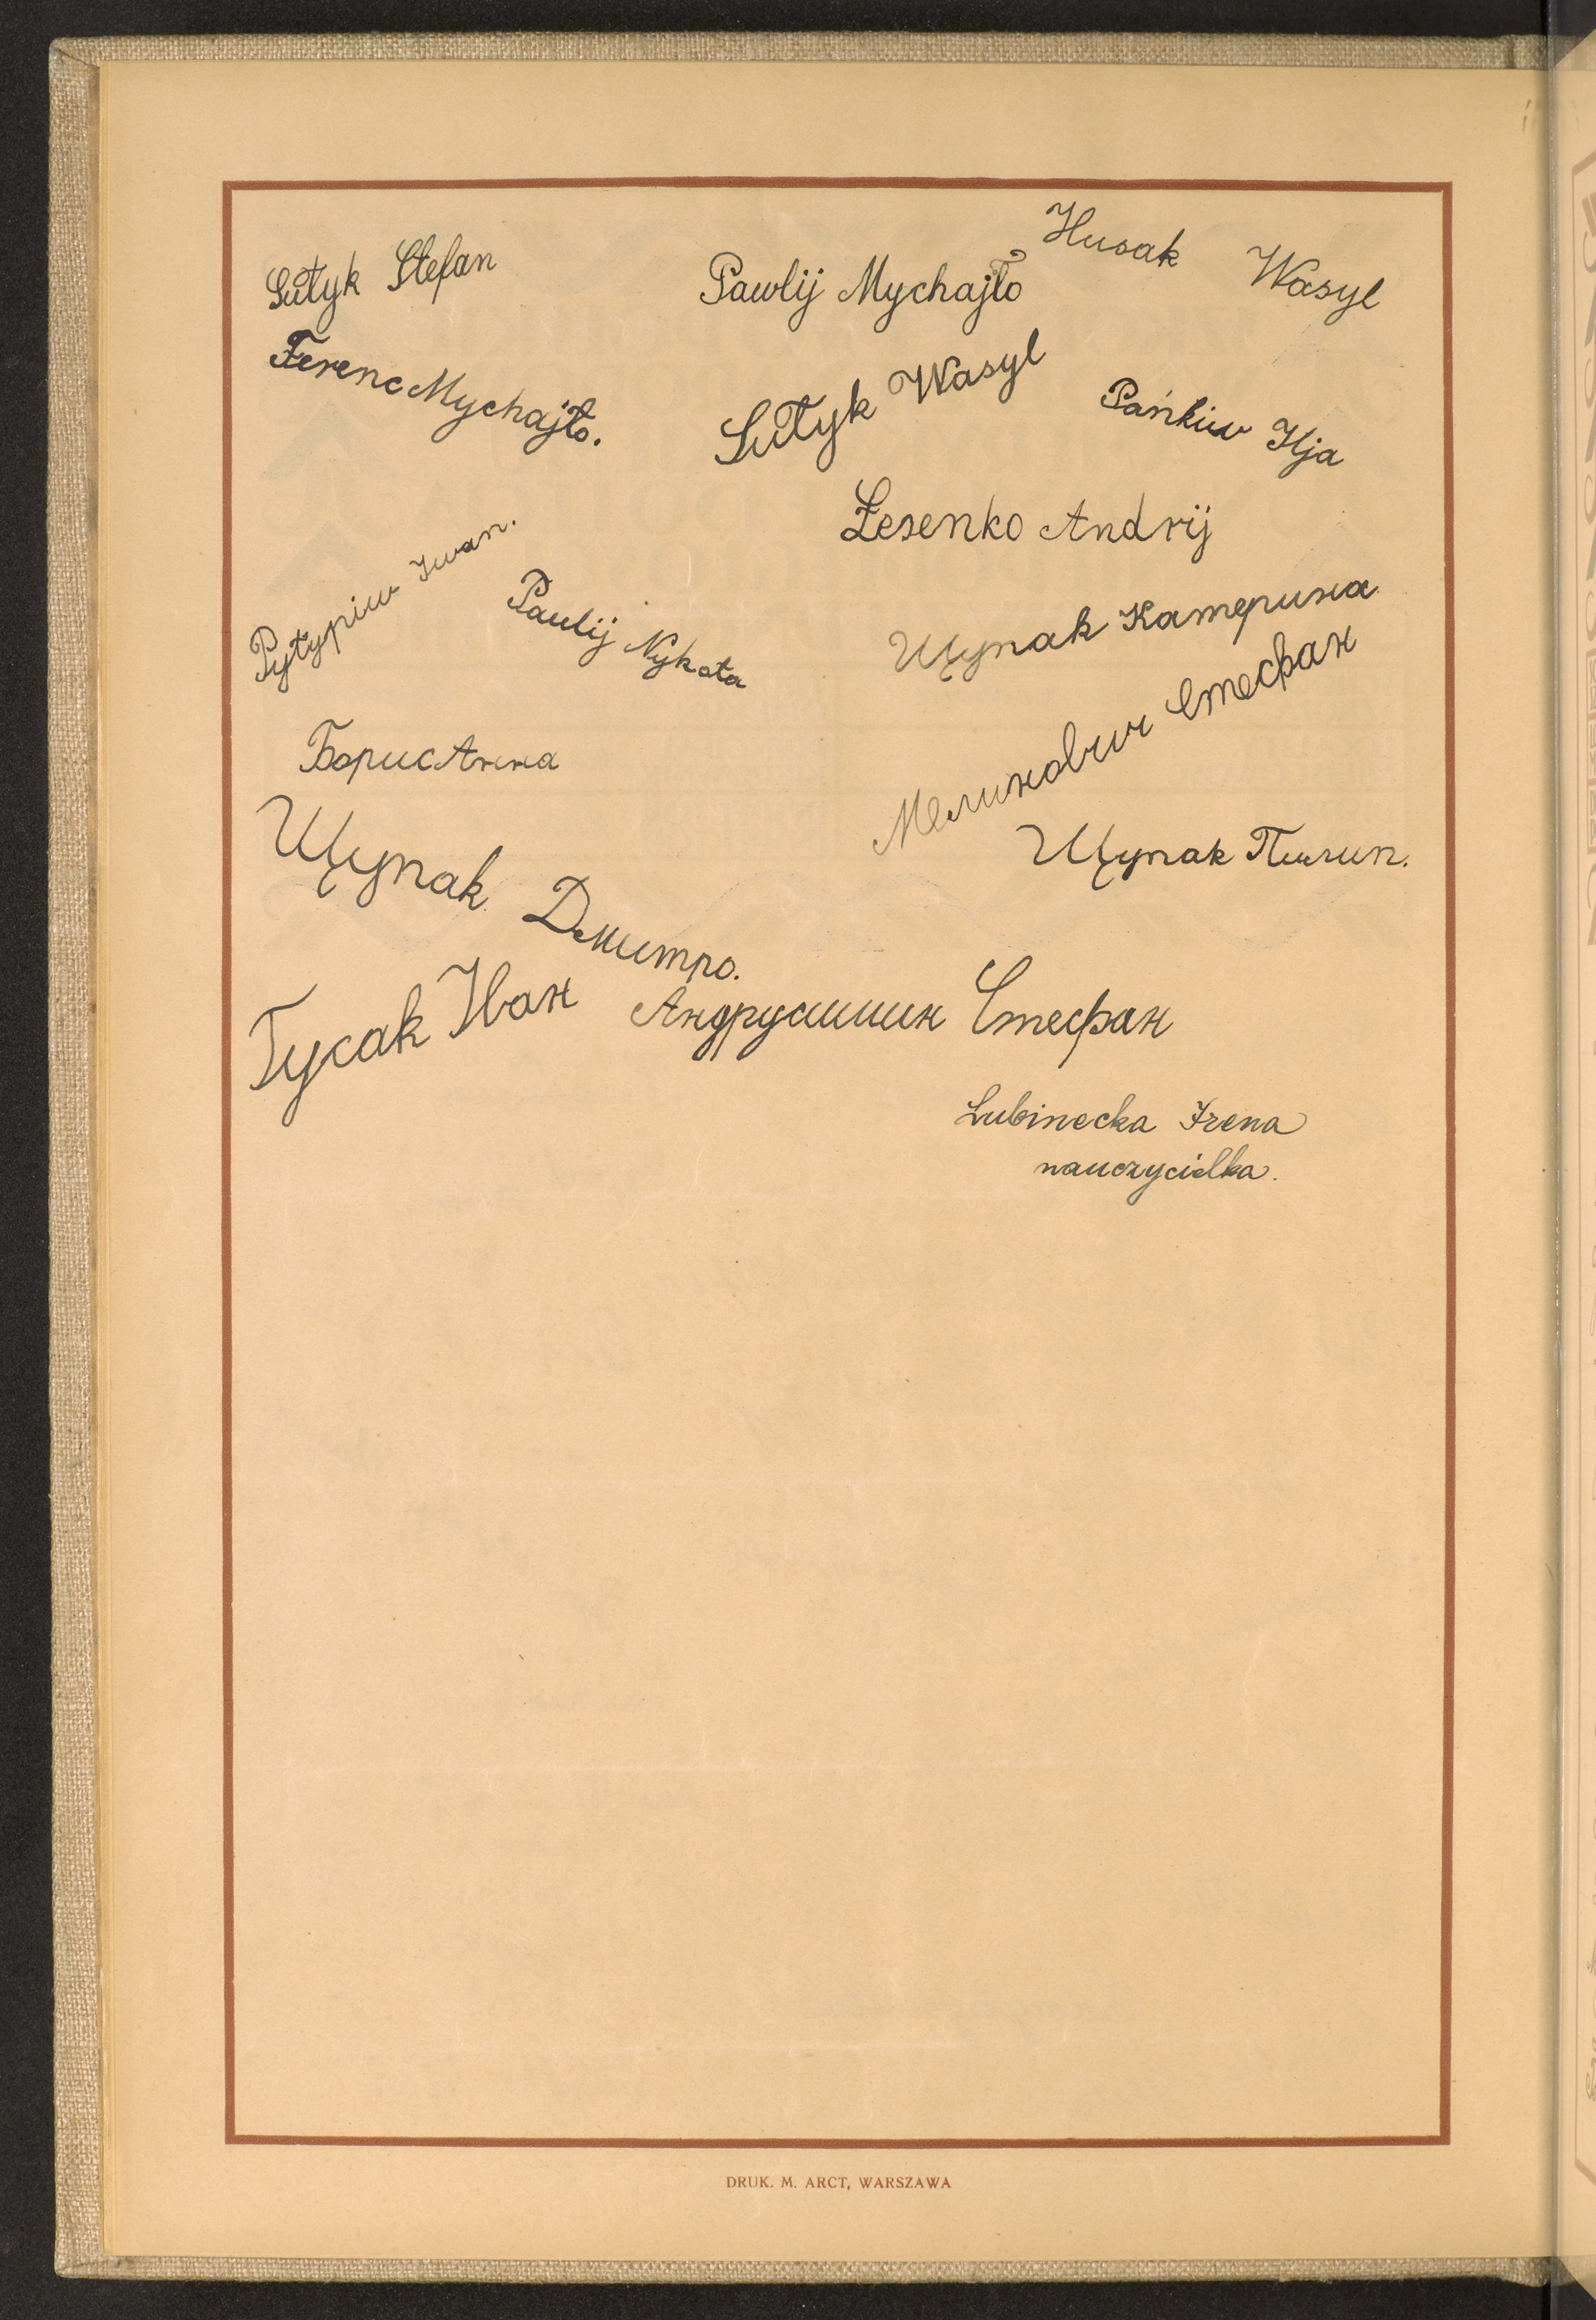 Sułyk Stefan
Pawlij Mychajło
Husak Wasyl
Ferenc Mychajło.
Sułyk Wasyl
Pańkiw Ilja
Łesenko Andrij
Pyłypiw Iwan.
Pawlij Nykoła
Щупак Катерина
Мелинович Стефан
Борис Анна
Щупак Пилип.
Щупак Дмитро.
Гусак Іван
Андрусишин Стефан
Lubinecka Irena
nauczycielka.
DRUK. M. ARCT, WARSZAWA